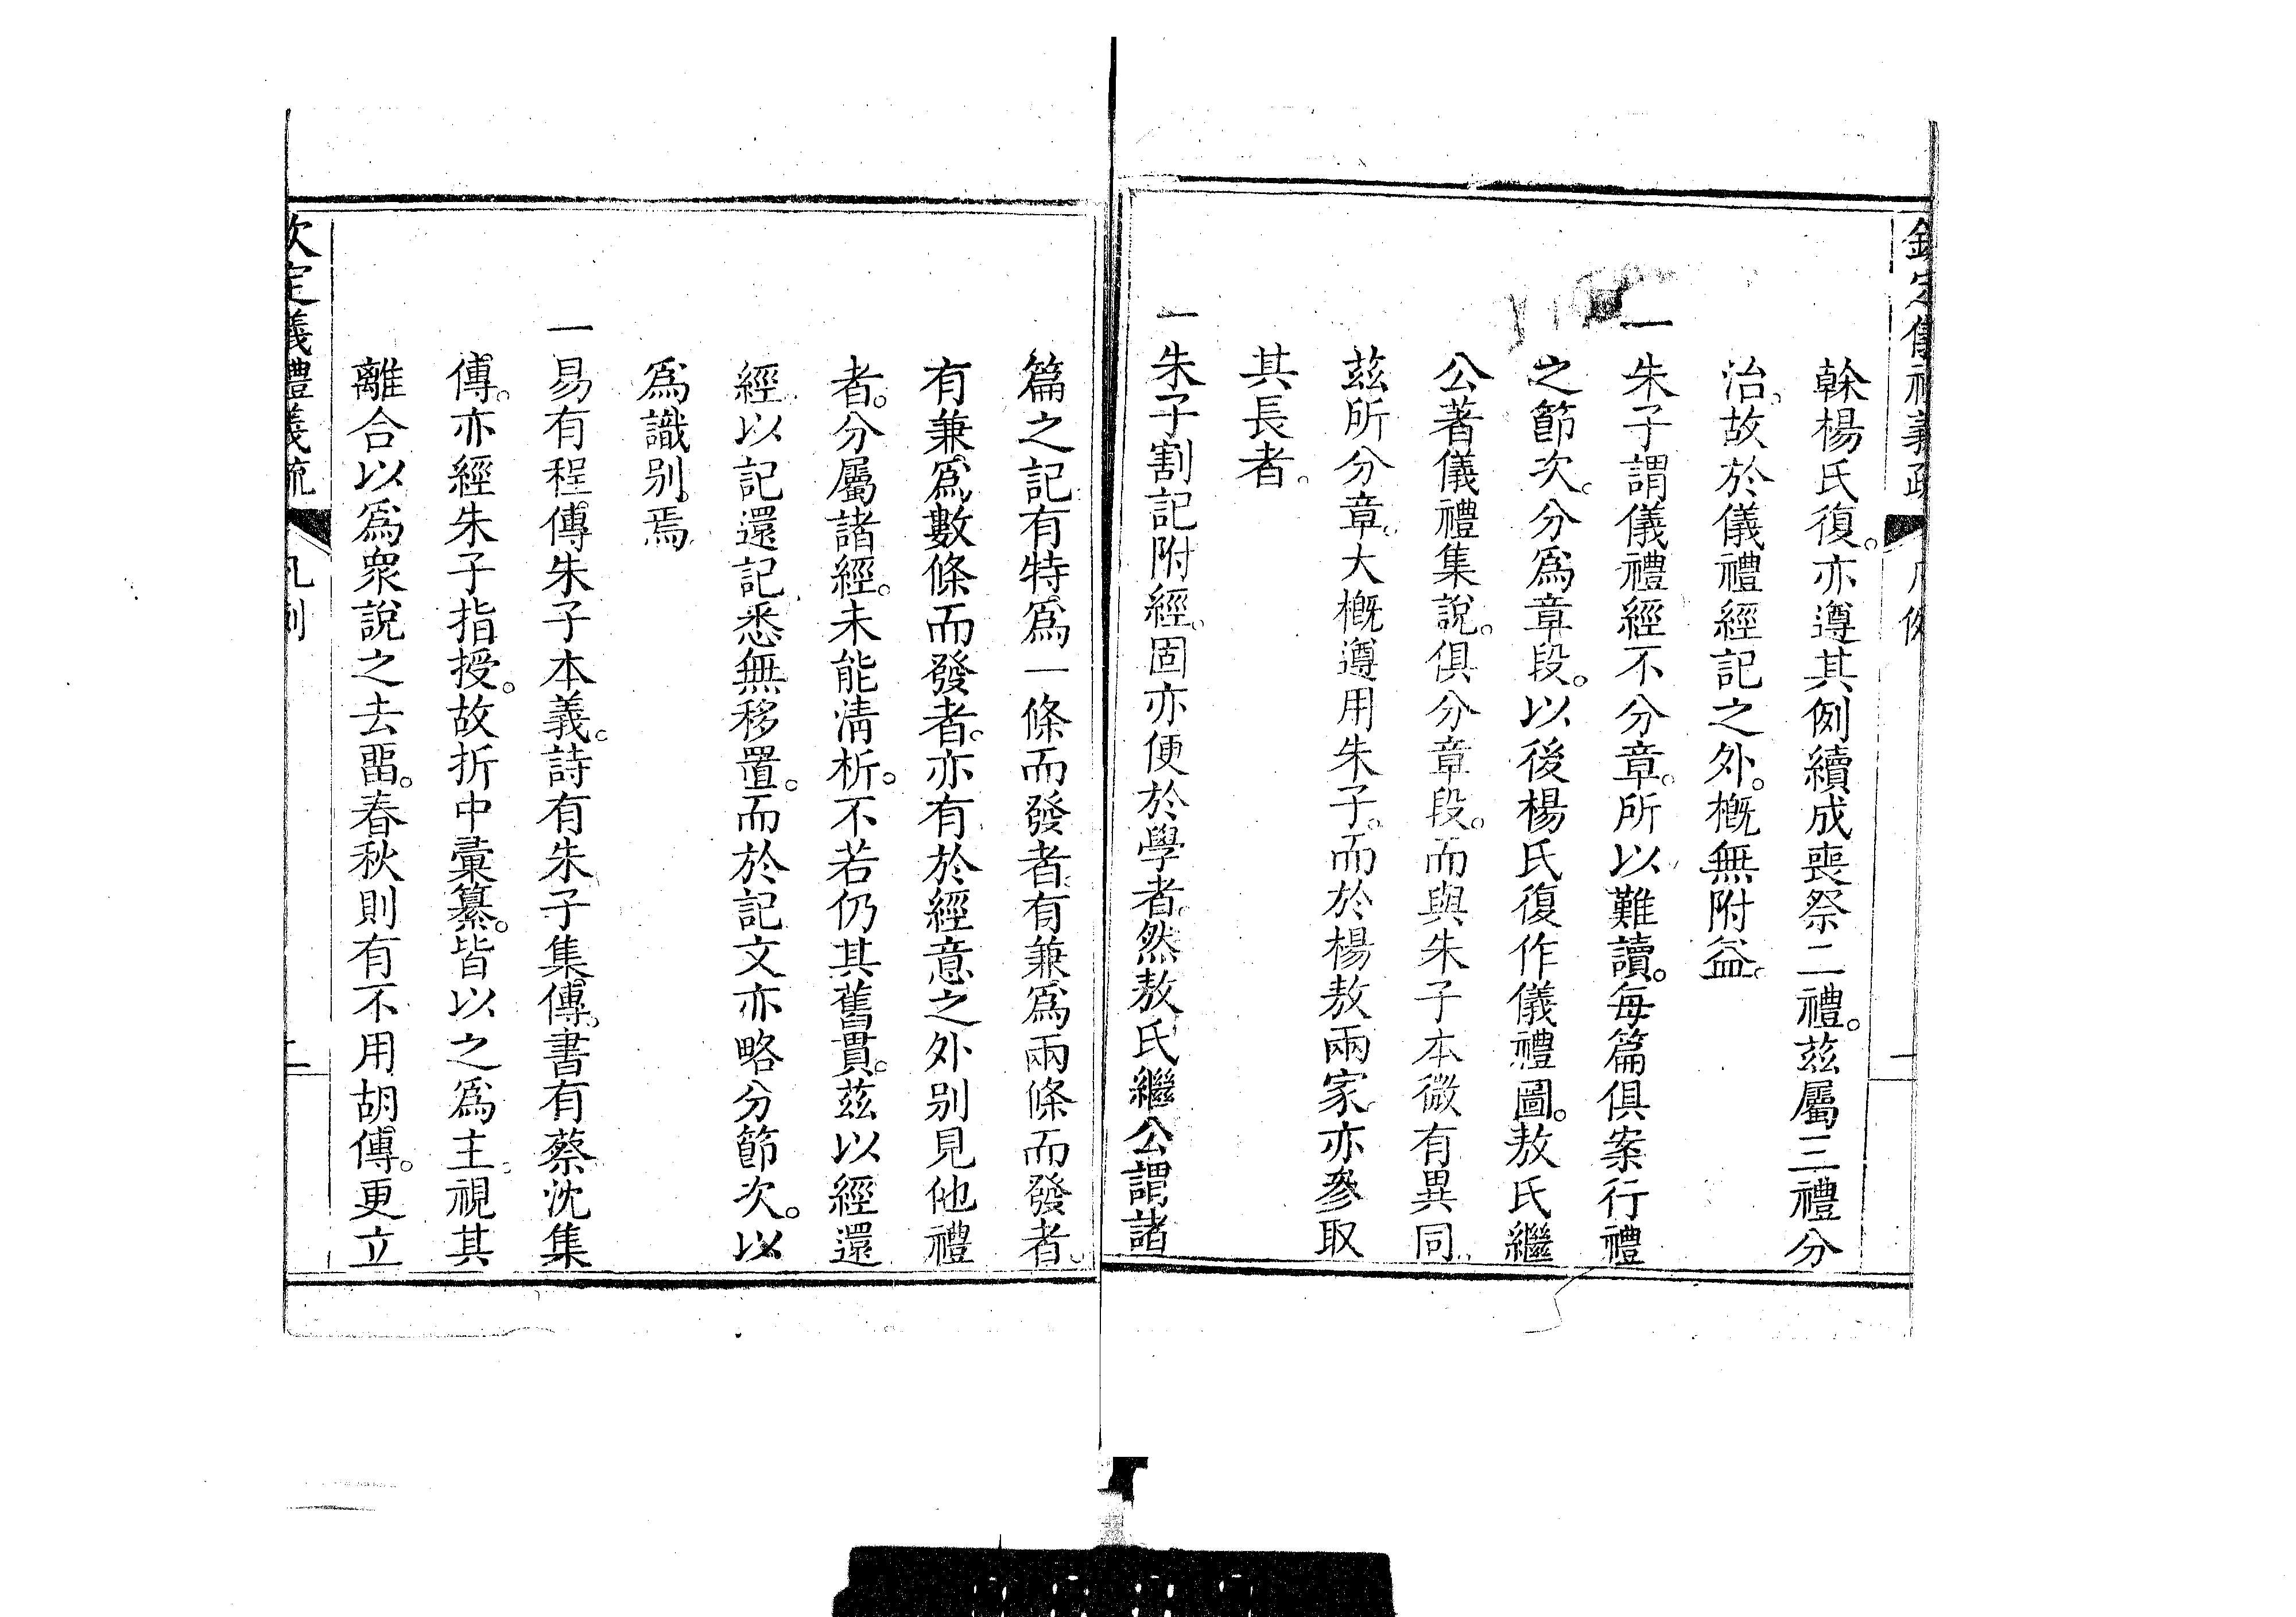 欽定儀禮義疏 凡例 一
榦楊氏復。亦遵其例續成喪祭二禮。茲屬三禮分
治。故於儀禮經記之外。概無附益。
一朱子謂儀禮經不分章。所以難讀。每篇俱案行禮
之節次。分爲章段。以後楊氏復作儀禮圖。敖氏繼
公著儀禮集說。俱分章段。而與朱子本微有異同。
茲所分章。大概遵用朱子。而於楊敖兩家亦參取
其長者。
一朱子割記附經。固亦便於學者。然敖氏繼公謂諸
篇之記有特爲一條而發者。有兼爲兩條而發者。
有兼爲數條而發者。亦有於經意之外别見他禮
者。分屬諸經。未能清析。不若仍其舊貫。茲以經還
經以記還記。悉無移置。而於記文亦略分節次。以
爲識别焉
一易有程傳朱子本義。詩有朱子集傳。書有蔡沈集
傳。亦經朱子指授。故折中彙纂。皆以之爲主。視其
離合以爲衆說之去畱。春秋則有不用胡傳。更立
欽定儀禮義疏 凡例 二